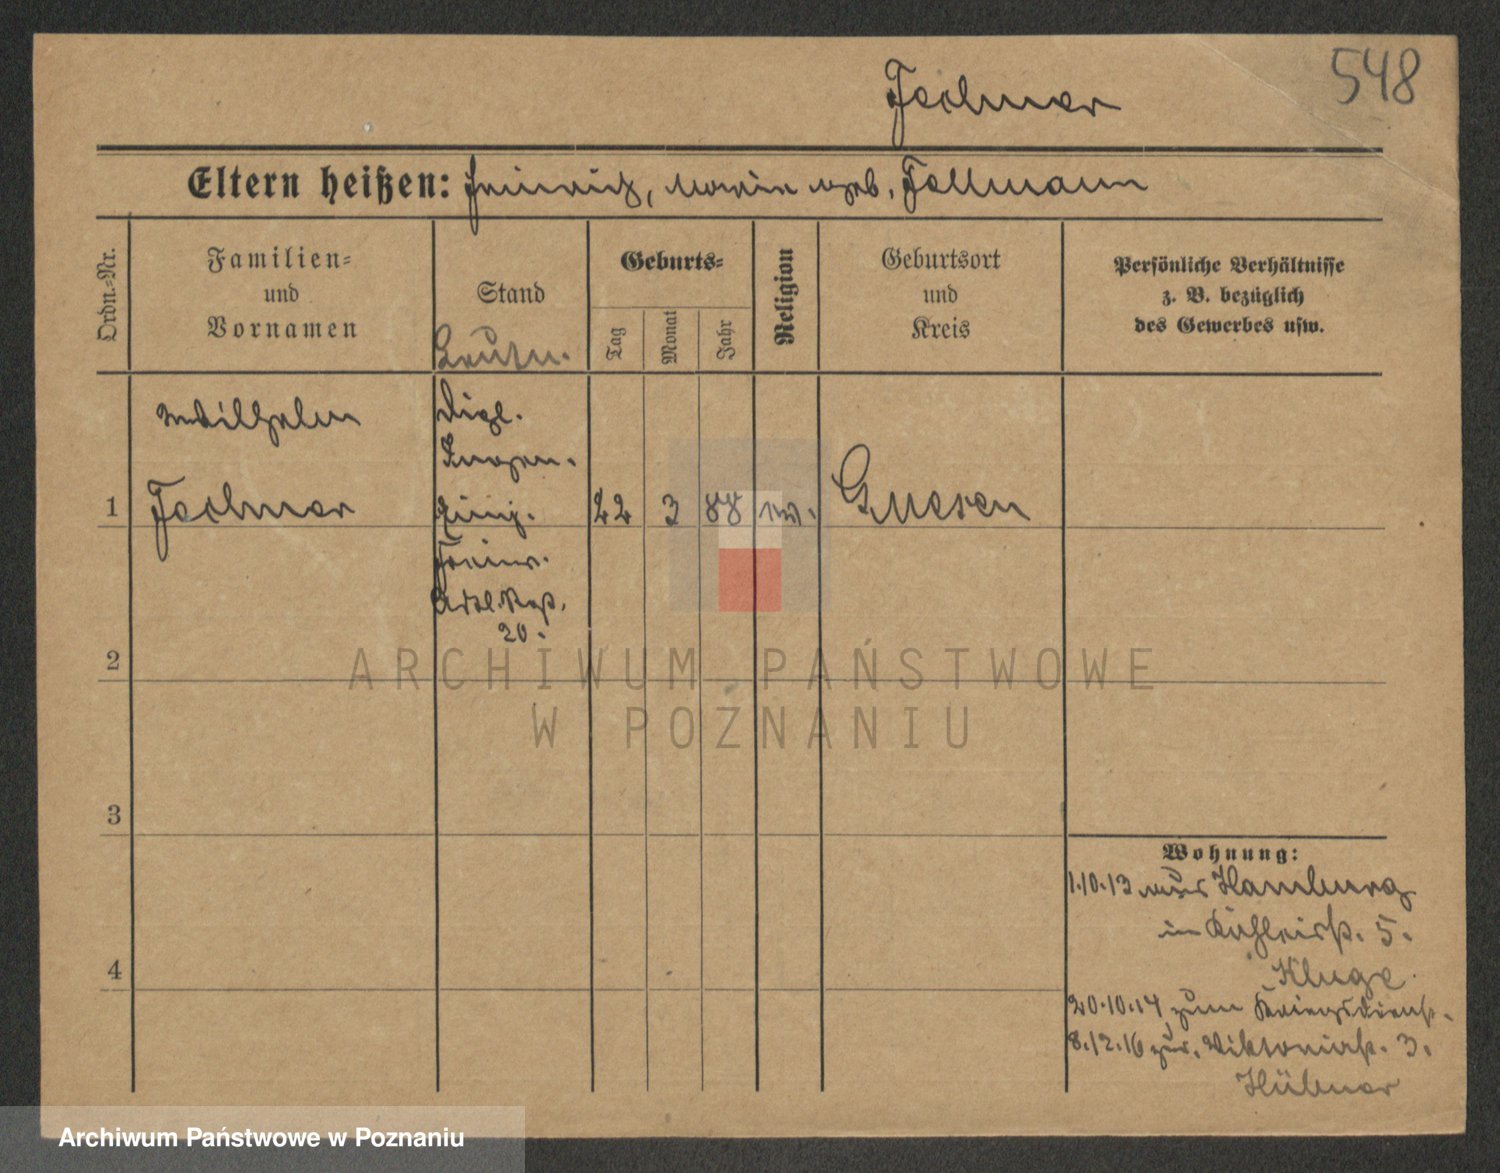 548
Eltern heißen: Heinrich, Marie geb. Follmann
Ordn.-Nr.
Familien-
und
Vornamen
Stand
Geburts-
Tag
Monat
Jahr
Religion
Geburtsort
und
Kreis
Persönliche Verhältnisse
z. B. bezüglich
des Gewerbes usw.
Leutn.
Wilhelm
Dipl.
Ingen.
1
Einj.
22
3
88
ev.
Gnesen
Freiw.
20.
2
3
4
Wohnung:
1.10.13 aus Hamburg
in 5.
Kluge.
20.10.14 zum Kriegsdienst.
8.12.16 zur. Viktoriastr. 3.
Hübner
ARCHIWUM PAŃSTWOWE
W POZNANIU
Archiwum Państwowe w Poznaniu